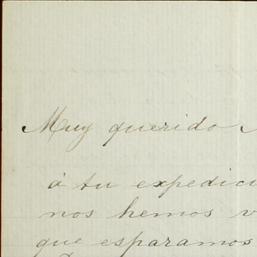 Muy querido
á tu expedici
nos hemos v
que esparamos